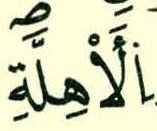 اَ۬لْأَهِلَّةِۖ